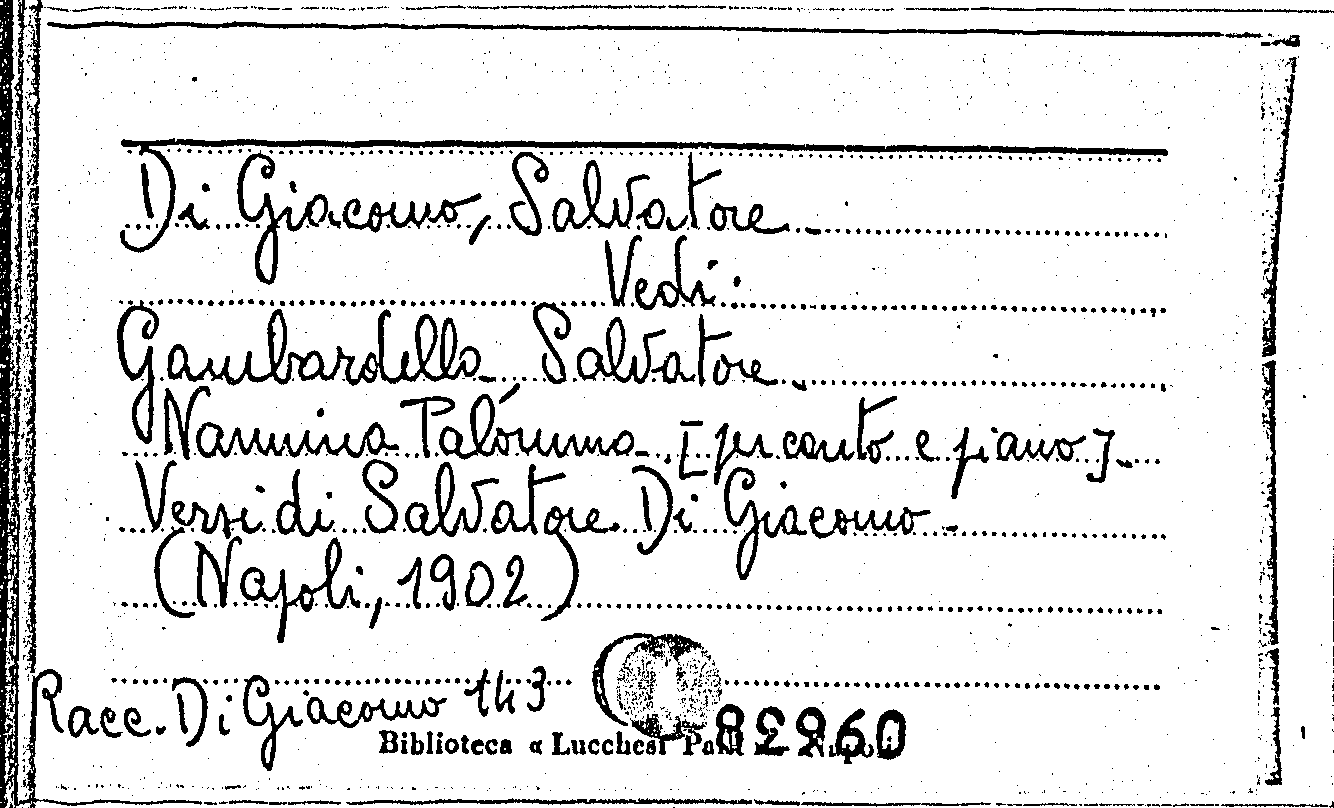 Di Giacomo, Salvatore.
Vedi:
Gambardella Salvatore.
Nannina Palómma. [per canto e piano].
Versi di Salvatore Di Giacomo.
(Napoli, 1902)
Racc. Di Giacomo 143
82260
Biblioteca « Lucchesi Palli — Napoli